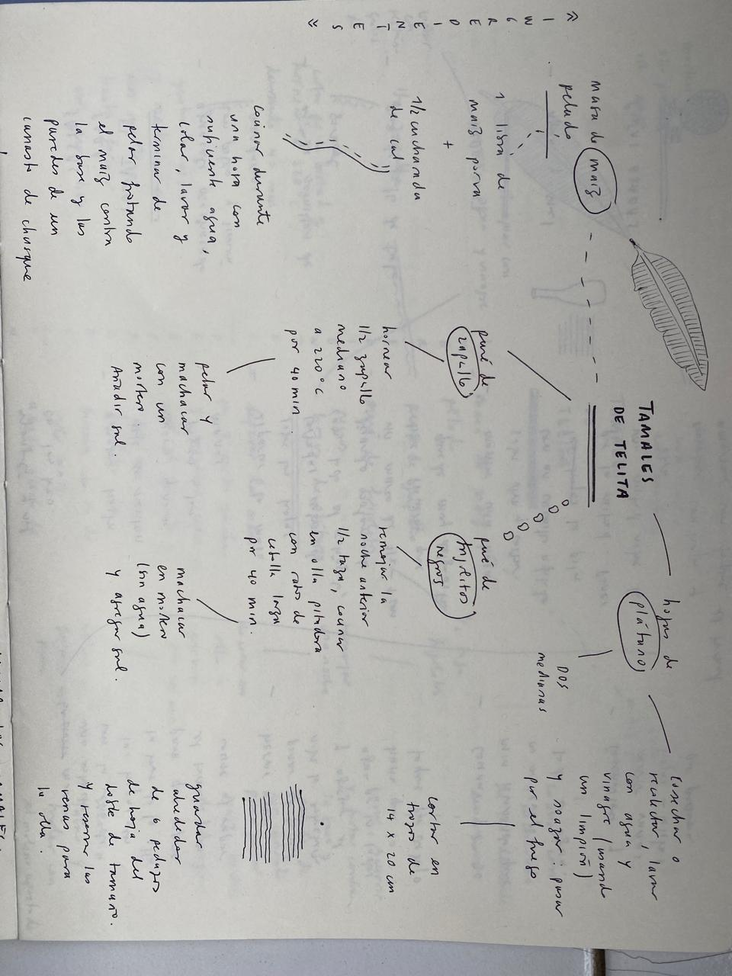 TAMALES
DE TELITA
« INGREDIENTES »
masa de maíz
pelado
1 libra de
maíz porva
+
1/2 cucharada
de cal
cocinar durante
una hora con
suficiente agua,
colar, lavar y
terminar de
pelar frotando
el maíz contra
la base y las
paredes de un
canasto de chusque
puré de
zapallo
hornear
1/2 zapallo
mediano
a 220°C
por 40 min
pelar y
machacar
con un
mortero
Añadir sal.
puré de
frijolitos
negros
remojar la
noche anterior
1/2 taza, cocinar
en olla pitadora
con ramas de
cebolla larga
por 40 min.
machacar
en mortero
(sin agua)
y agregar sal.
hojas de
plátano
DOS
medianas
cosechar o
recolectar, lavar
con agua y
vinagre (usando
un limpión)
y soasar: pasar
por el fuego
cortar en
trozos de
14 x 20 cm
guardar
alrededor
de 6 pedazos
de hoja del
doble de tamaño.
y reservar las
venas para
la olla.